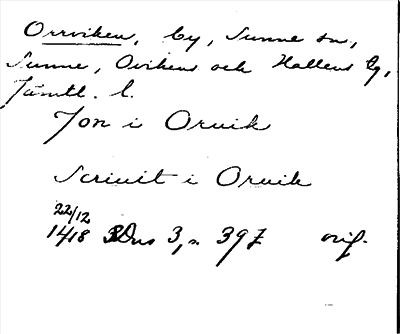 Orrviken, by, Sunne sn,
Sunne, Ovikens och Hallens tg,
Jämtl. l.
Jon i Orvik
Scriuit i Orvik
22/12
1418 SDns 3, n 397 orig.